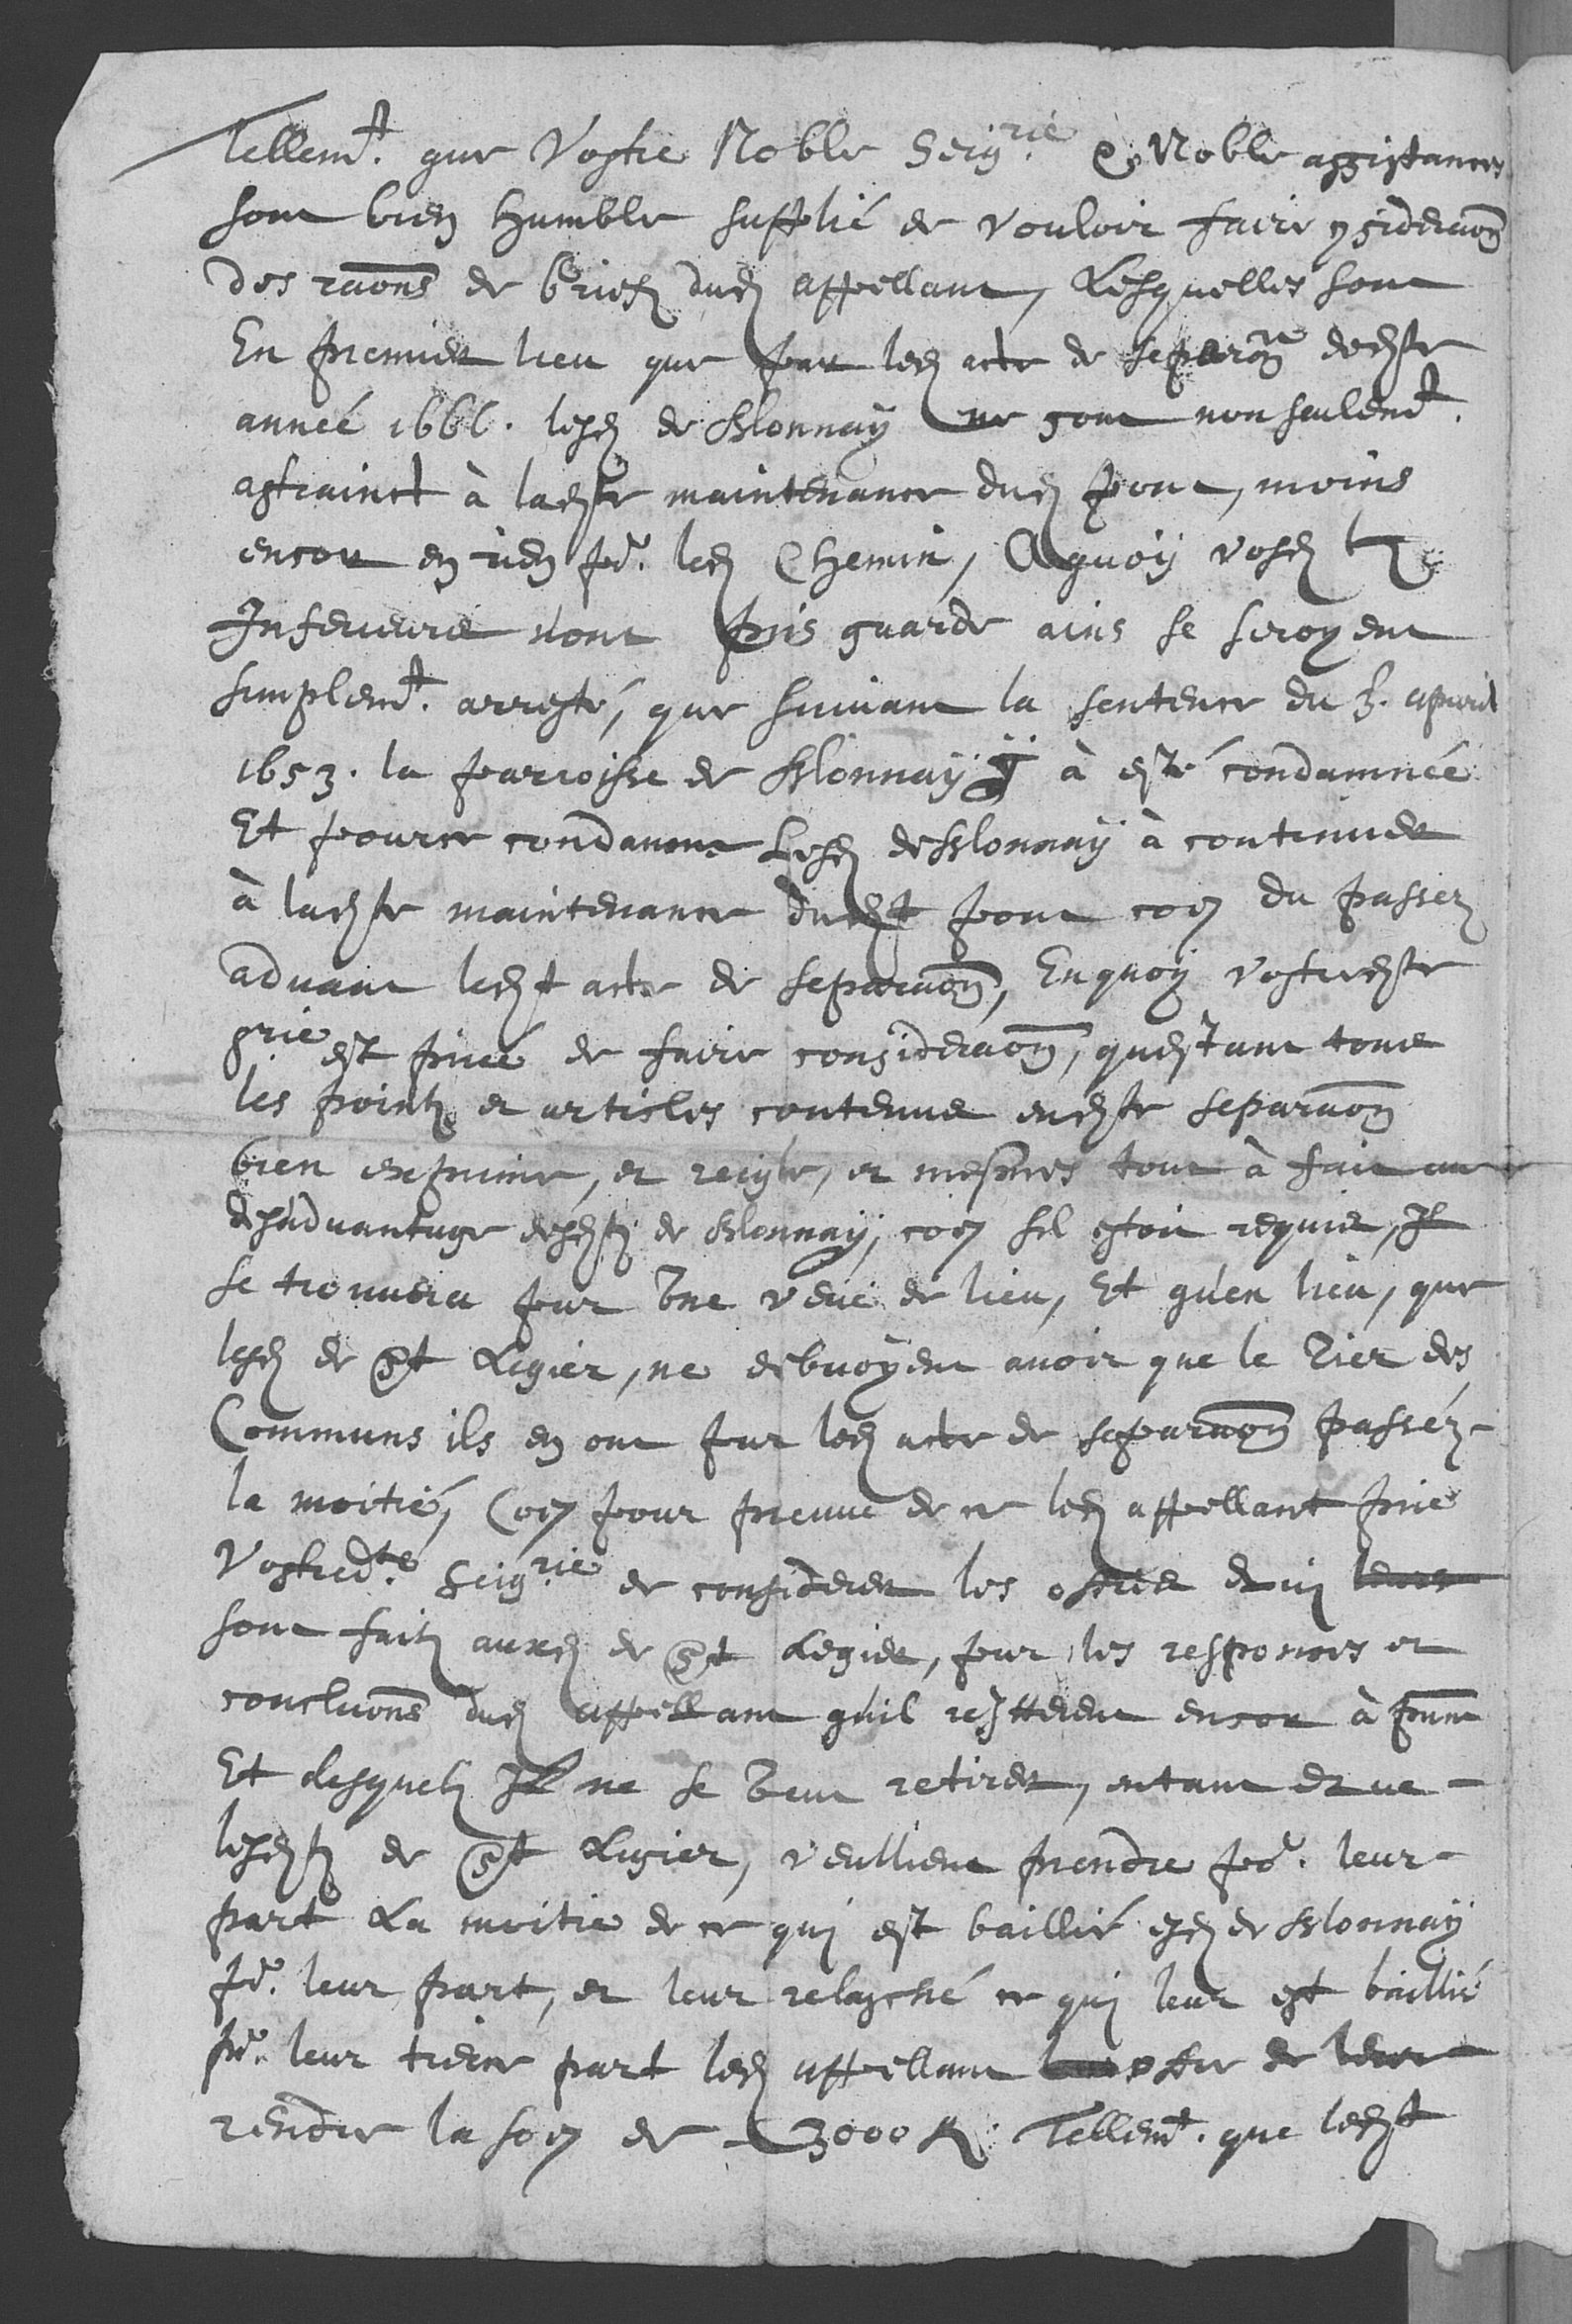 Tellemt. que Vostre Noble Seigrie & Noble assistances
sont bien humble supplié de vouloir faire gsideraon
des raons de briefz dud appellant, Lesquelles sont
En premier lieu que par led acte de separaon dedste
année 1666. lesd de Blonnaÿ ne sont non seulemt.
astrainct à ladste maintenance dud pont, moins
encor en rien pr. led Chemin, Aquoÿ vosd
Inferieurs n'ont pris guarde ains se seroyent
simplemt. arresté, que suivant la sentence du 3. apvril
1653. la parroisse de Blonnaÿ à esté condamnée
Et pource condamne Lesd de Blonnaÿ à continuer
à ladste maintenance dudst pont coe du passez
advant ledst acte de separaon, Enquoÿ vostredste
grie est prié de faire consideraon, questant tous
les pointz et articles contenus endste separaon
bien exprimé, et recité, et mesmes tout à fait au
desadvantage desdstz de Blonnaÿ, coe sil estoit requis, Il
se trouvera par une veüe de lieu, Et qu'en lieu, que
lesd de St Legier, ne debvoÿent avoir que le Tier des
Communs ils en ont par led acte de separaon passéz
la moitié, Coe pour preuve de ce led appellant prie
Vostredte. Seigrie de considerer les offres qui leurs
sont faitz auxd de St Legier, par les responces et
concluons dud appellant qu'il rejtterent encor à pnnt
Et desquelz Il ne se veut retirer, entant que
lesdstz de St Legier, veullient prendre pr. leur
part La moitie de ce qui est baillié esd de Blonnaÿ
pr. leur part, et leur relasché ce qui leur est baillié
pr. leur tierce part led appellant offre de leur
rendre la soe de 3000 fl: Tellemt. que ledst